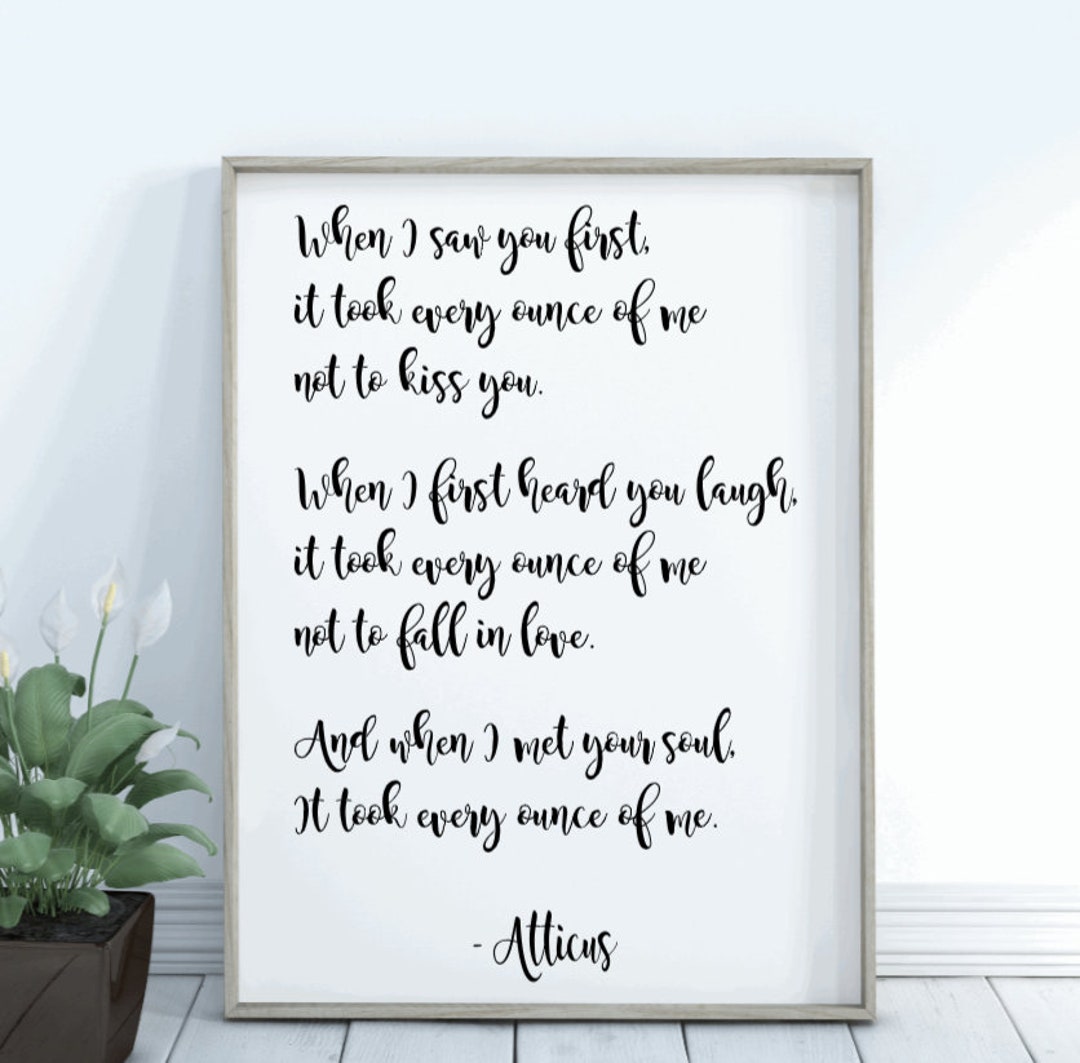 When I saw you first,
it took every ounce of me
not to kiss you.
When I first heard you laugh,
it took every ounce of me
not to fall in love.
And when I met your soul,
It took every ounce of me.
- Atticus